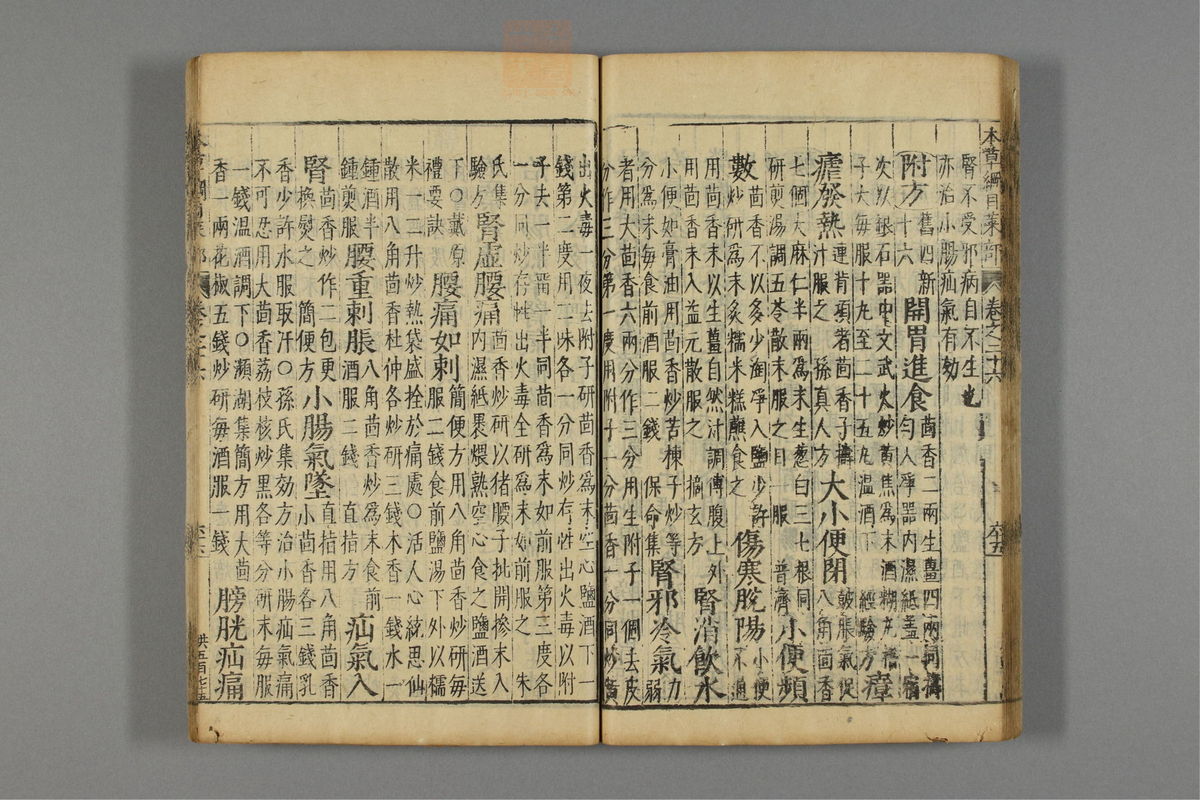 本草綱目菜部 卷之二十六 六五
腎不受邪病自不生也
亦治小腸疝氣有効
附方 舊四新十六 開胃進食 茴香二兩生薑四兩同擣勻入淨器內濕紙葢一宿
次以銀石器中文武火炒黃焦為末酒糊丸梧
子大每服十丸至二十五丸溫酒下 經驗方 瘴
瘧發熱 連背項者茴香子擣汁服之 孫真人方 大小便閉 鼓脹氣促八角茴香
七個大麻仁半兩為末生葱白三七根同
研煎湯調五苓散末服之日一服 普濟 小便頻
數 茴香不以多少淘淨入鹽少許炒研為末炙糯米糕蘸食之 傷寒脫陽 小便不通
用茴香末以生薑自然汁調傅腹上外
用茴香末入益元散服之 摘玄方 腎消飲水
小便如膏油用茴香炒苦楝子炒等
分為末每食前酒服二錢 保命集 腎邪冷氣 力弱
者用大茴香六兩分作三分用生附子一個去皮
分作三分第一度用附子一分茴香一分同炒黃
出火毒一夜去附子研茴香為末空心鹽酒下一
錢第二度用二味各一分同炒存性出火毒以附
子去一半留一半同茴香為末如前服第三度各
一分同炒存性出火毒全研為末如前服之 朱
氏集驗方 腎虛腰痛 茴香炒研以猪腰子批開摻末入內濕紙裹煨熟空心食之鹽酒送
下○戴原禮要訣 腰痛如刺 簡便方用八角茴香炒研每服二錢食前鹽湯下外以糯
米一二升炒熱袋盛拴於痛處○活人心統思仙
散用八角茴香杜仲各炒研三錢木香一錢水一
鍾酒半鍾煎服 腰重刺脹 八角茴香炒為末食前酒服二錢 直指方 疝氣入
腎 茴香炒作二包更換熨之 簡便方 小腸氣墜 直指用八角茴香小茴香各三錢乳
香少許水服取汗○孫氏集効方治小腸疝氣痛
不可忍用大茴香荔枝核炒黑各等分研末每服
一錢溫酒調下○瀕湖集簡方用大茴
香一兩花椒五錢炒研每酒服一錢 膀胱疝痛
本草綱目菜部 卷之二十六 六六